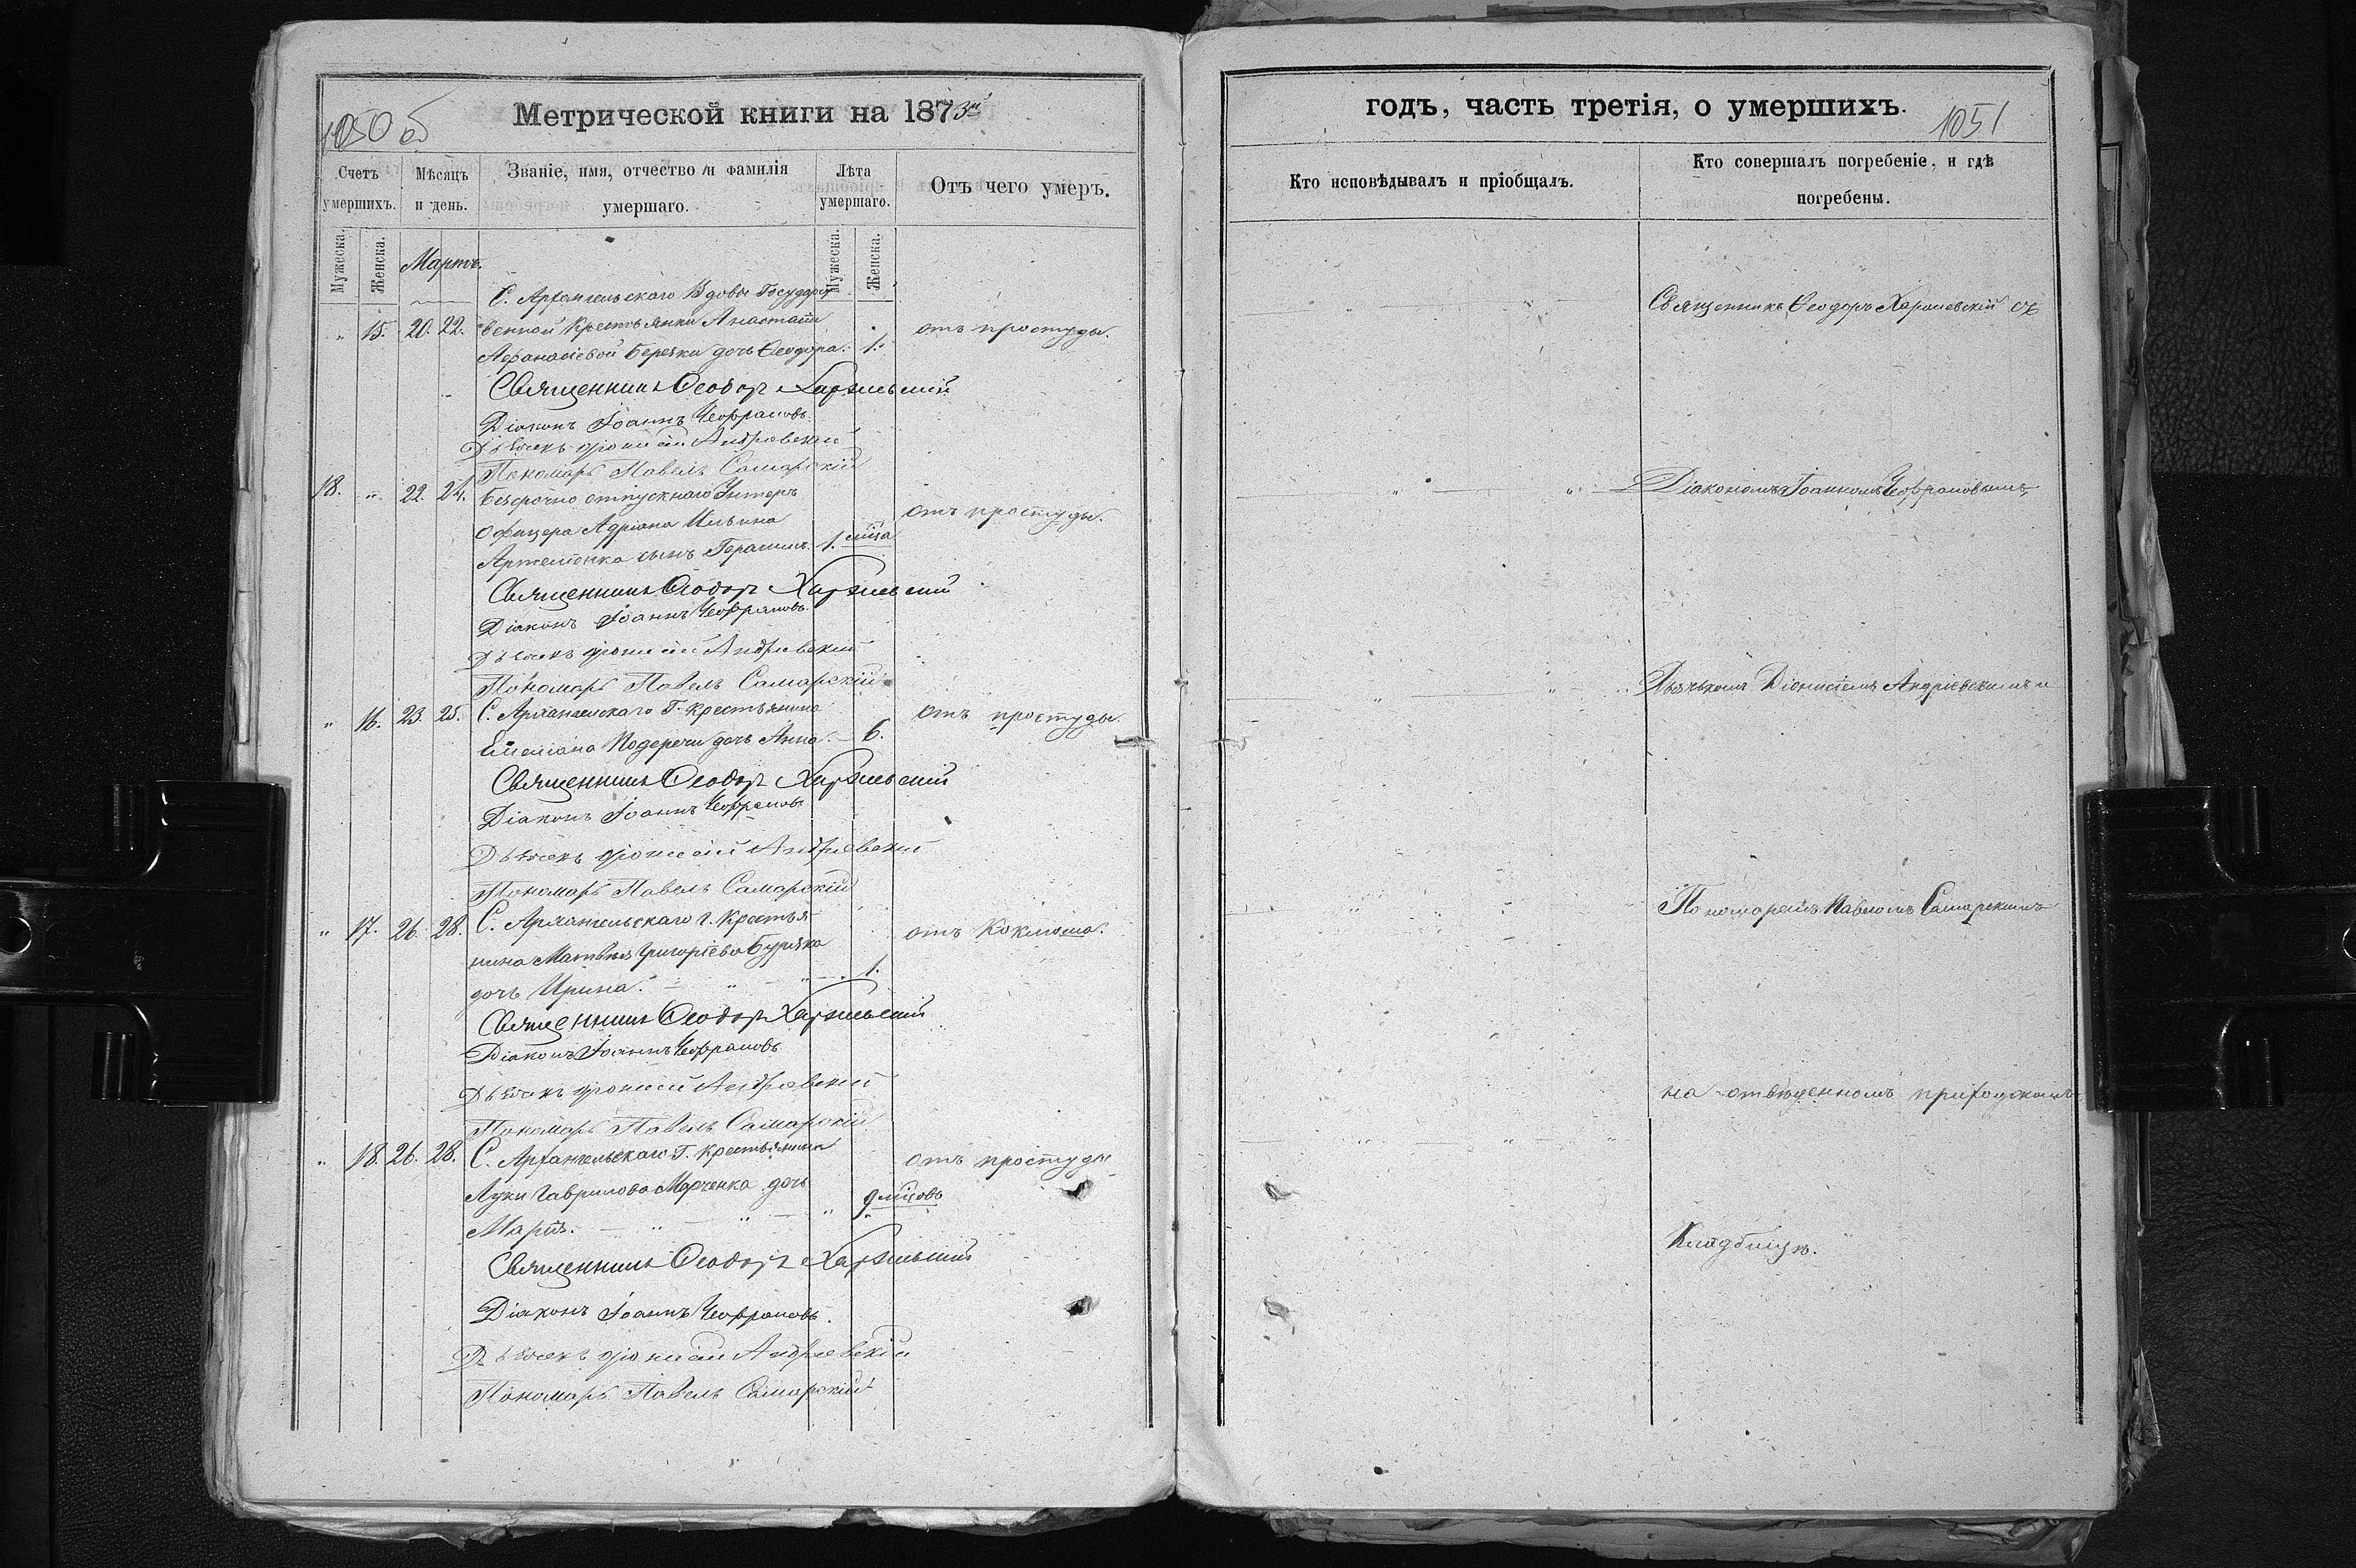 1050 об
Метрической книги на 1873й
Счетъ умершихъ.
Мѣсяцъ и день.
Званіе, имя, отчество и фамилія умершаго.
Лѣта умершаго.
Отъ чего умеръ.
Мужеска.
Женска.
Мужеска.
Женска.
Мартъ.
С. Архангельскаго Вдовы Государст
" 15. 20. 22. венной Крестьянки Анастасіи отъ простуды.
Афанасіевой Береки дочь Ѳеодора. 1.
Священникъ Ѳеодоръ
Діаконъ Іоаннъ
Дьячекъ Діонисій Андріевскій
Пономарь Павелъ Самарскій
18. " 22. 24. безсрочно отпускнаго Унтеръ
офицера Адріана Ильина отъ простуды.
Артеменка сынъ Герасимъ. 1. мца
Священникъ Ѳеодоръ
Діаконъ Іоаннъ
Дьячекъ Діонисій Андріевскій
Пономарь Павелъ Самарскій
" 16. 23. 25. С. Архангельскаго Г. Крестьянина отъ простуды.
дочь Анна. 6.
Священникъ Ѳеодоръ
Діаконъ Іоаннъ
Дьячекъ Діонисій Андріевскій
Пономарь Павелъ Самарскій
" 17. 26. 28. С. Архангельскаго Г. Крестья- отъ Коклюша.
нина Матвѣя Григоріева Буряка
дочь Ирина. 1.
Священникъ Ѳеодоръ
Діаконъ Іоаннъ
Дьячекъ Діонисій Андріевскій
Пономарь Павелъ Самарскій
" 18. 26. 28. С. Архангельскаго Г. Крестьянина отъ простуды
Луки Гаврилова Марченка дочь 9 мцовъ
Марія.
Священникъ Ѳеодоръ
Діаконъ Іоаннъ
Дьячекъ Діонисій Андріевскій
Пономарь Павелъ Самарскій
годъ, часть третія, о умершихъ.
1051
Кто исповѣдывалъ и пріобщалъ.
Кто совершалъ погребеніе, и гдѣ погребены.
Священникъ Ѳеодоръ съ
Діакономъ Іоанномъ
Дьячькомъ Діонисіемъ Андріевскимъ и
Пономаремъ Павломъ Самарскимъ
на отвѣденномъ приходскомъ
Кладбищѣ.